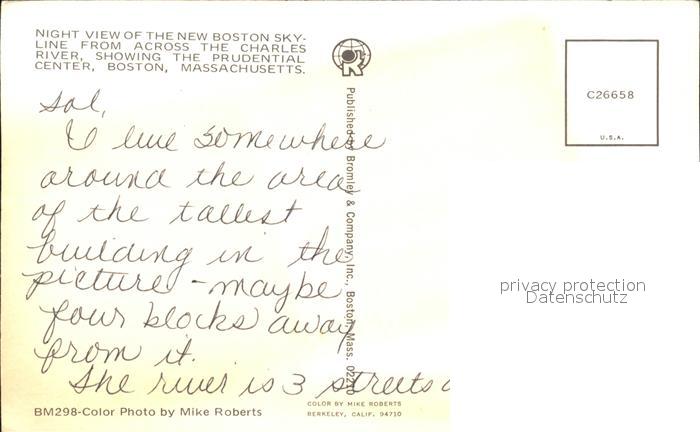 NIGHT VIEW OF THE NEW BOSTON SKY-
LINE FROM ACROSS THE CHARLES
RIVER, SHOWING THE PRUDENTIAL
CENTER, BOSTON, MASSACHUSETTS.
Sal,
I live somewhere
around the area
of the tallest
building in the
picture - maybe
four blocks away
from it.
The river is 3 streets
BM298-Color Photo by Mike Roberts
Published by Bromley & Company, Inc., Boston, Mass.
COLOR BY MIKE ROBERTS
BERKELEY, CALIF. 94710
C26658
U.S.A.
privacy protection
Datenschutz